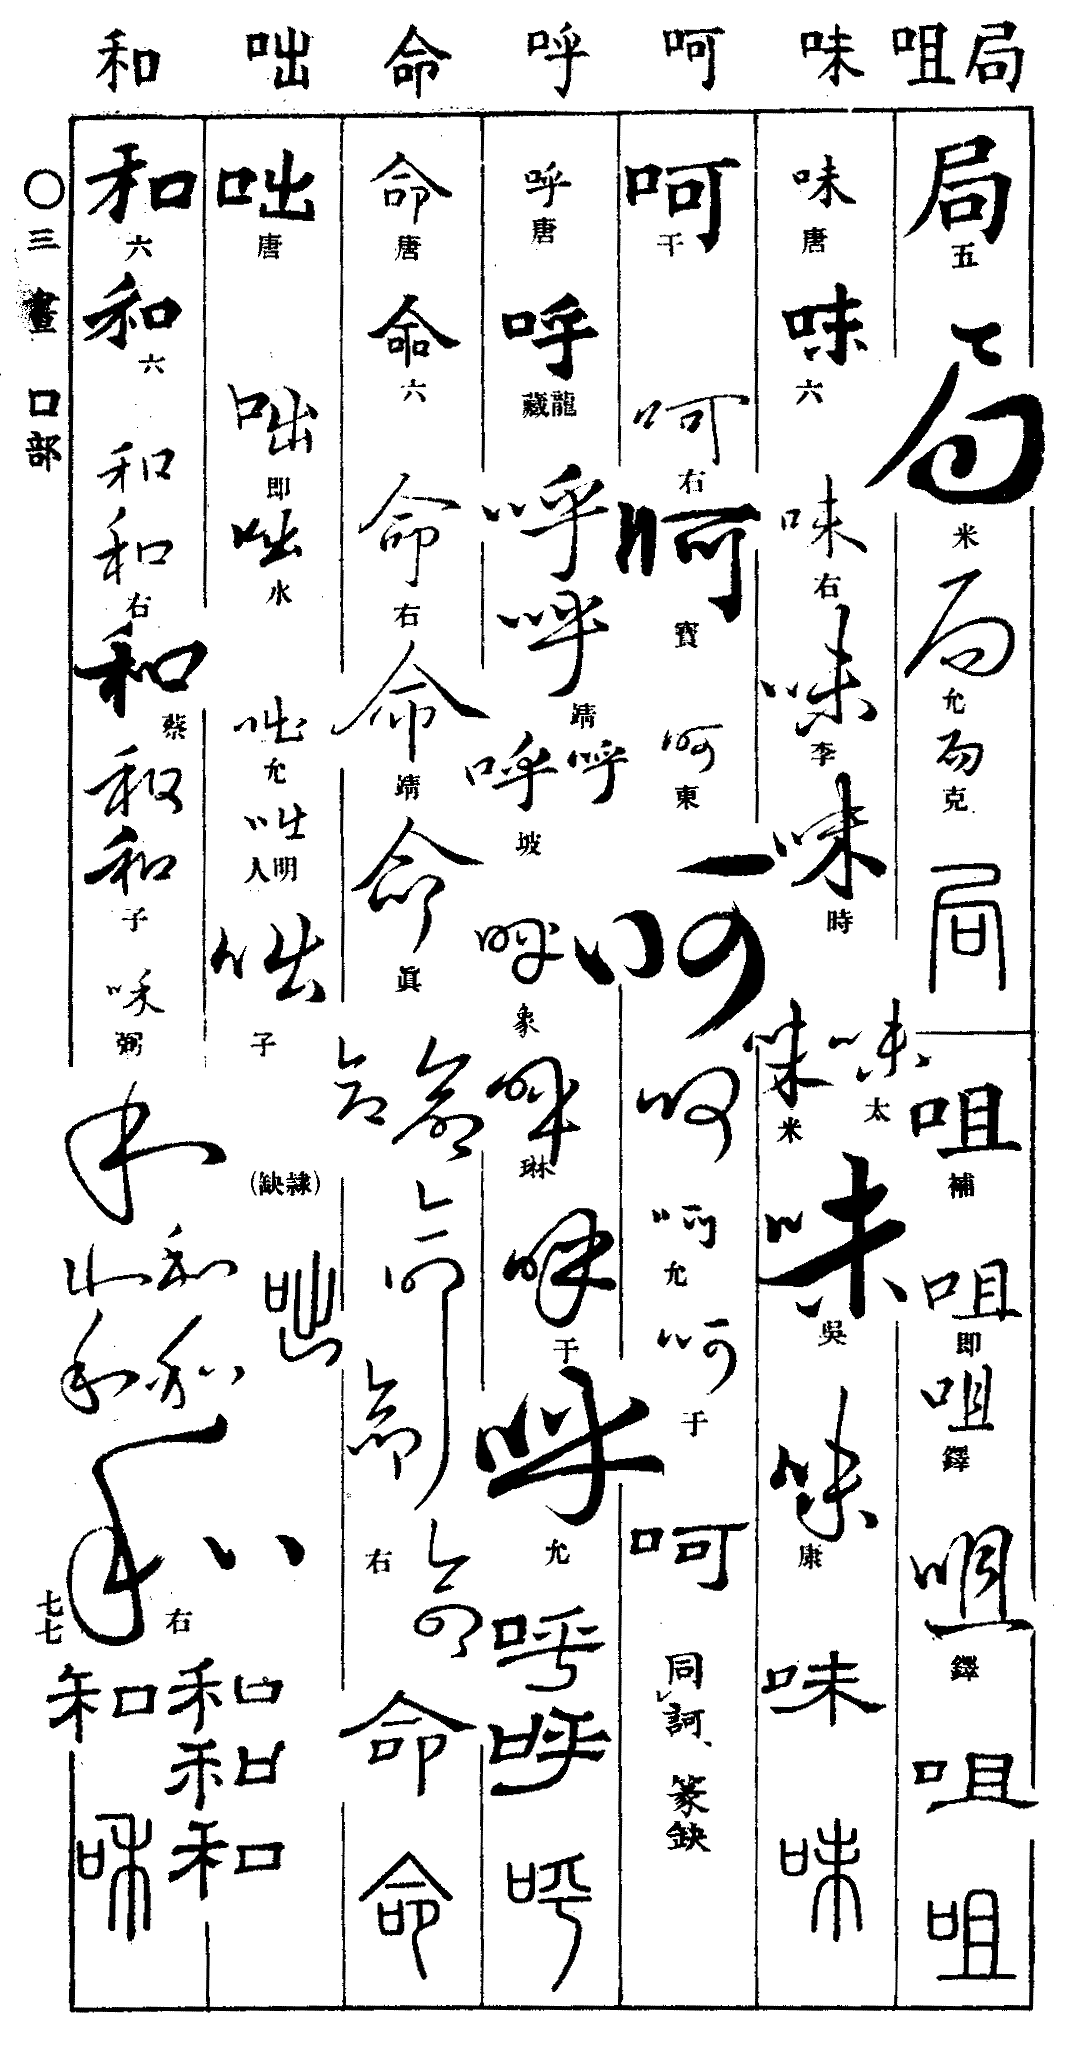 局 咀 味 呵 呼 命 咄 和
局 五
局 米
局 允
局 克
局
咀 補
咀 即
咀 鐸
咀 鐸
咀
咀
味 唐
味 六
味 右
味 李
味 時
味 太
味 米
味 吳
味 康
味
味
呵 干
呵 右
呵 寶
呵 東
呵
呵
呵 允
呵 于
呵
同訶、篆缺
呼 唐
呼 龍藏
呼
呼 靖
呼
呼 坡
呼 象
呼 琳
呼 于
呼 允
呼
呼
呼
命 唐
命 六
命 右
命 靖
命 真
命
命
命
命
命 右
命
命
咄 唐
咄 即
咄 水
咄 允
咄 明人
咄 子
(隸缺)
咄
和 六
和 六
和
和 右
和 蔡
和
和 子
和 弼
和
和
和
和
和
和 右
和
和
和
和
和
〇三畫 口部
七七